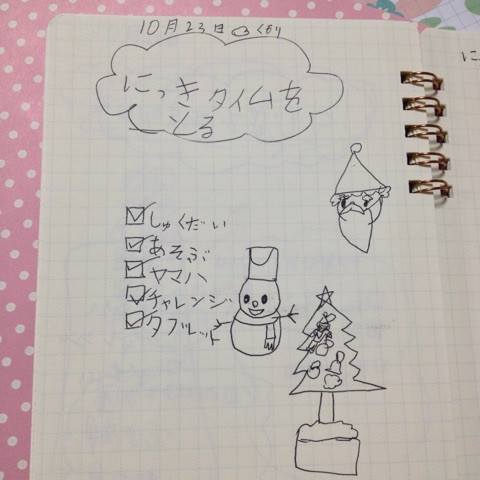 10月23日 くもり
にっきタイムを
とる
しゅくだい
あそぶ
ヤマハ
チャレンジ
タブレット
に